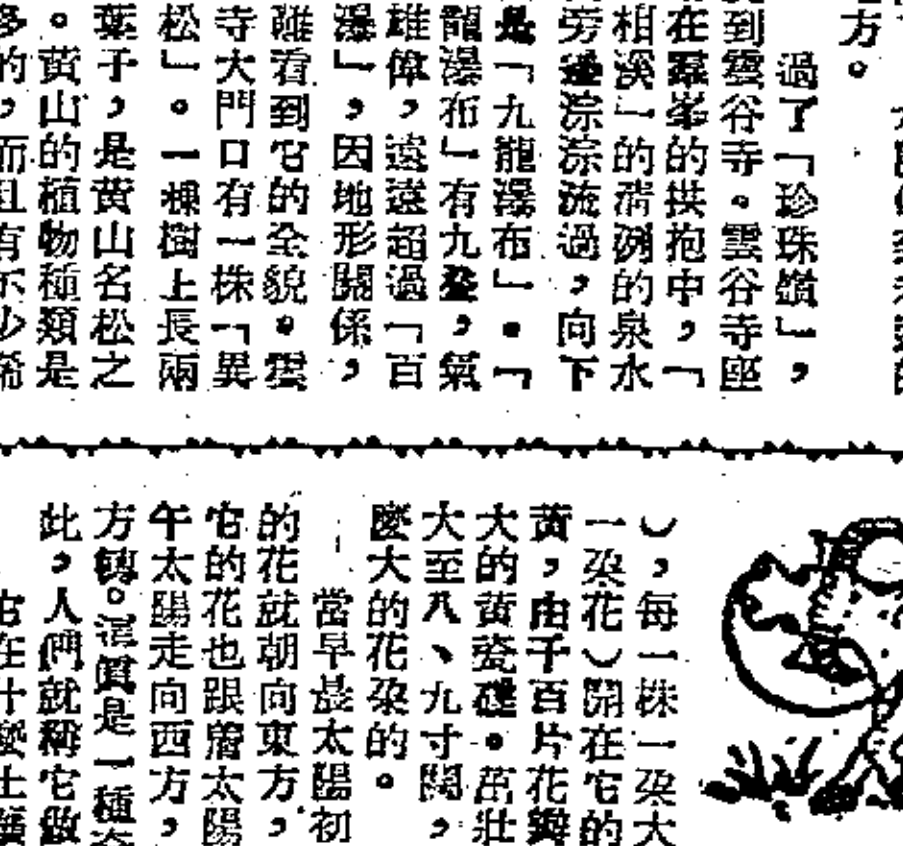 方。
過了「珍珠嶺」，
到雲谷寺。雲谷寺座
在羣峯的拱抱中，「
相溪」的清洌的泉水
旁邊淙淙流過，向下
是「九龍瀑布」。「
龍瀑布」有九叠，氣
雄偉，遠遠超過「百
瀑」，因地形關係，
雖看到它的全貌。雲
寺大門口有一株「異
松」。一棵樹上長兩
葉子，是黃山名松之
。黃山的植物種類是
多的，而且有不少希
），每一株一朶大
一朶花）開在它的
黃，由千百片花瓣
大的黃瓷碟。茁壯
大至八、九寸闊，
麼大的花朶的。
當早晨太陽初
的花就朝向東方，
它的花也跟着太陽
午太陽走向西方，
方轉。這眞是一種奇
此，人們就稱它做
它在什麼土壤